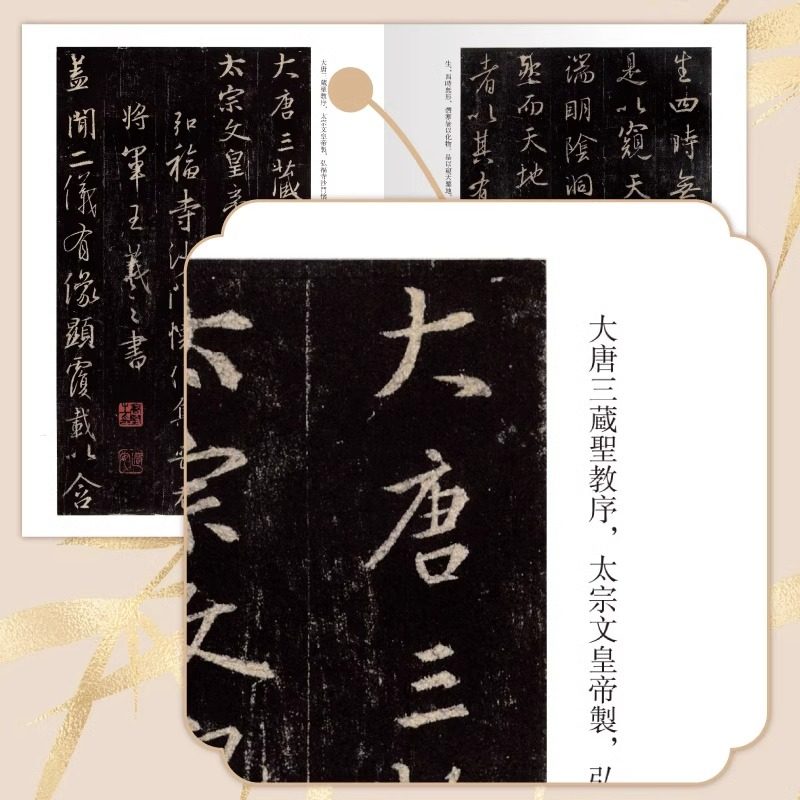 生四時無
是以窺天
端明陰洞
然而天地
者以其有
生，四時無形，潛寒暑以化物。是以窺天鑒地，
大唐三藏聖教序，太宗文皇帝製，弘福寺沙門懷
大唐三藏
太宗文皇帝
弘福寺沙門懷仁集晉右
將軍王羲之書
蓋聞二儀有像顯覆載以含
大唐三蔵聖教序，太宗文皇帝製，弘
大唐三
太宗文